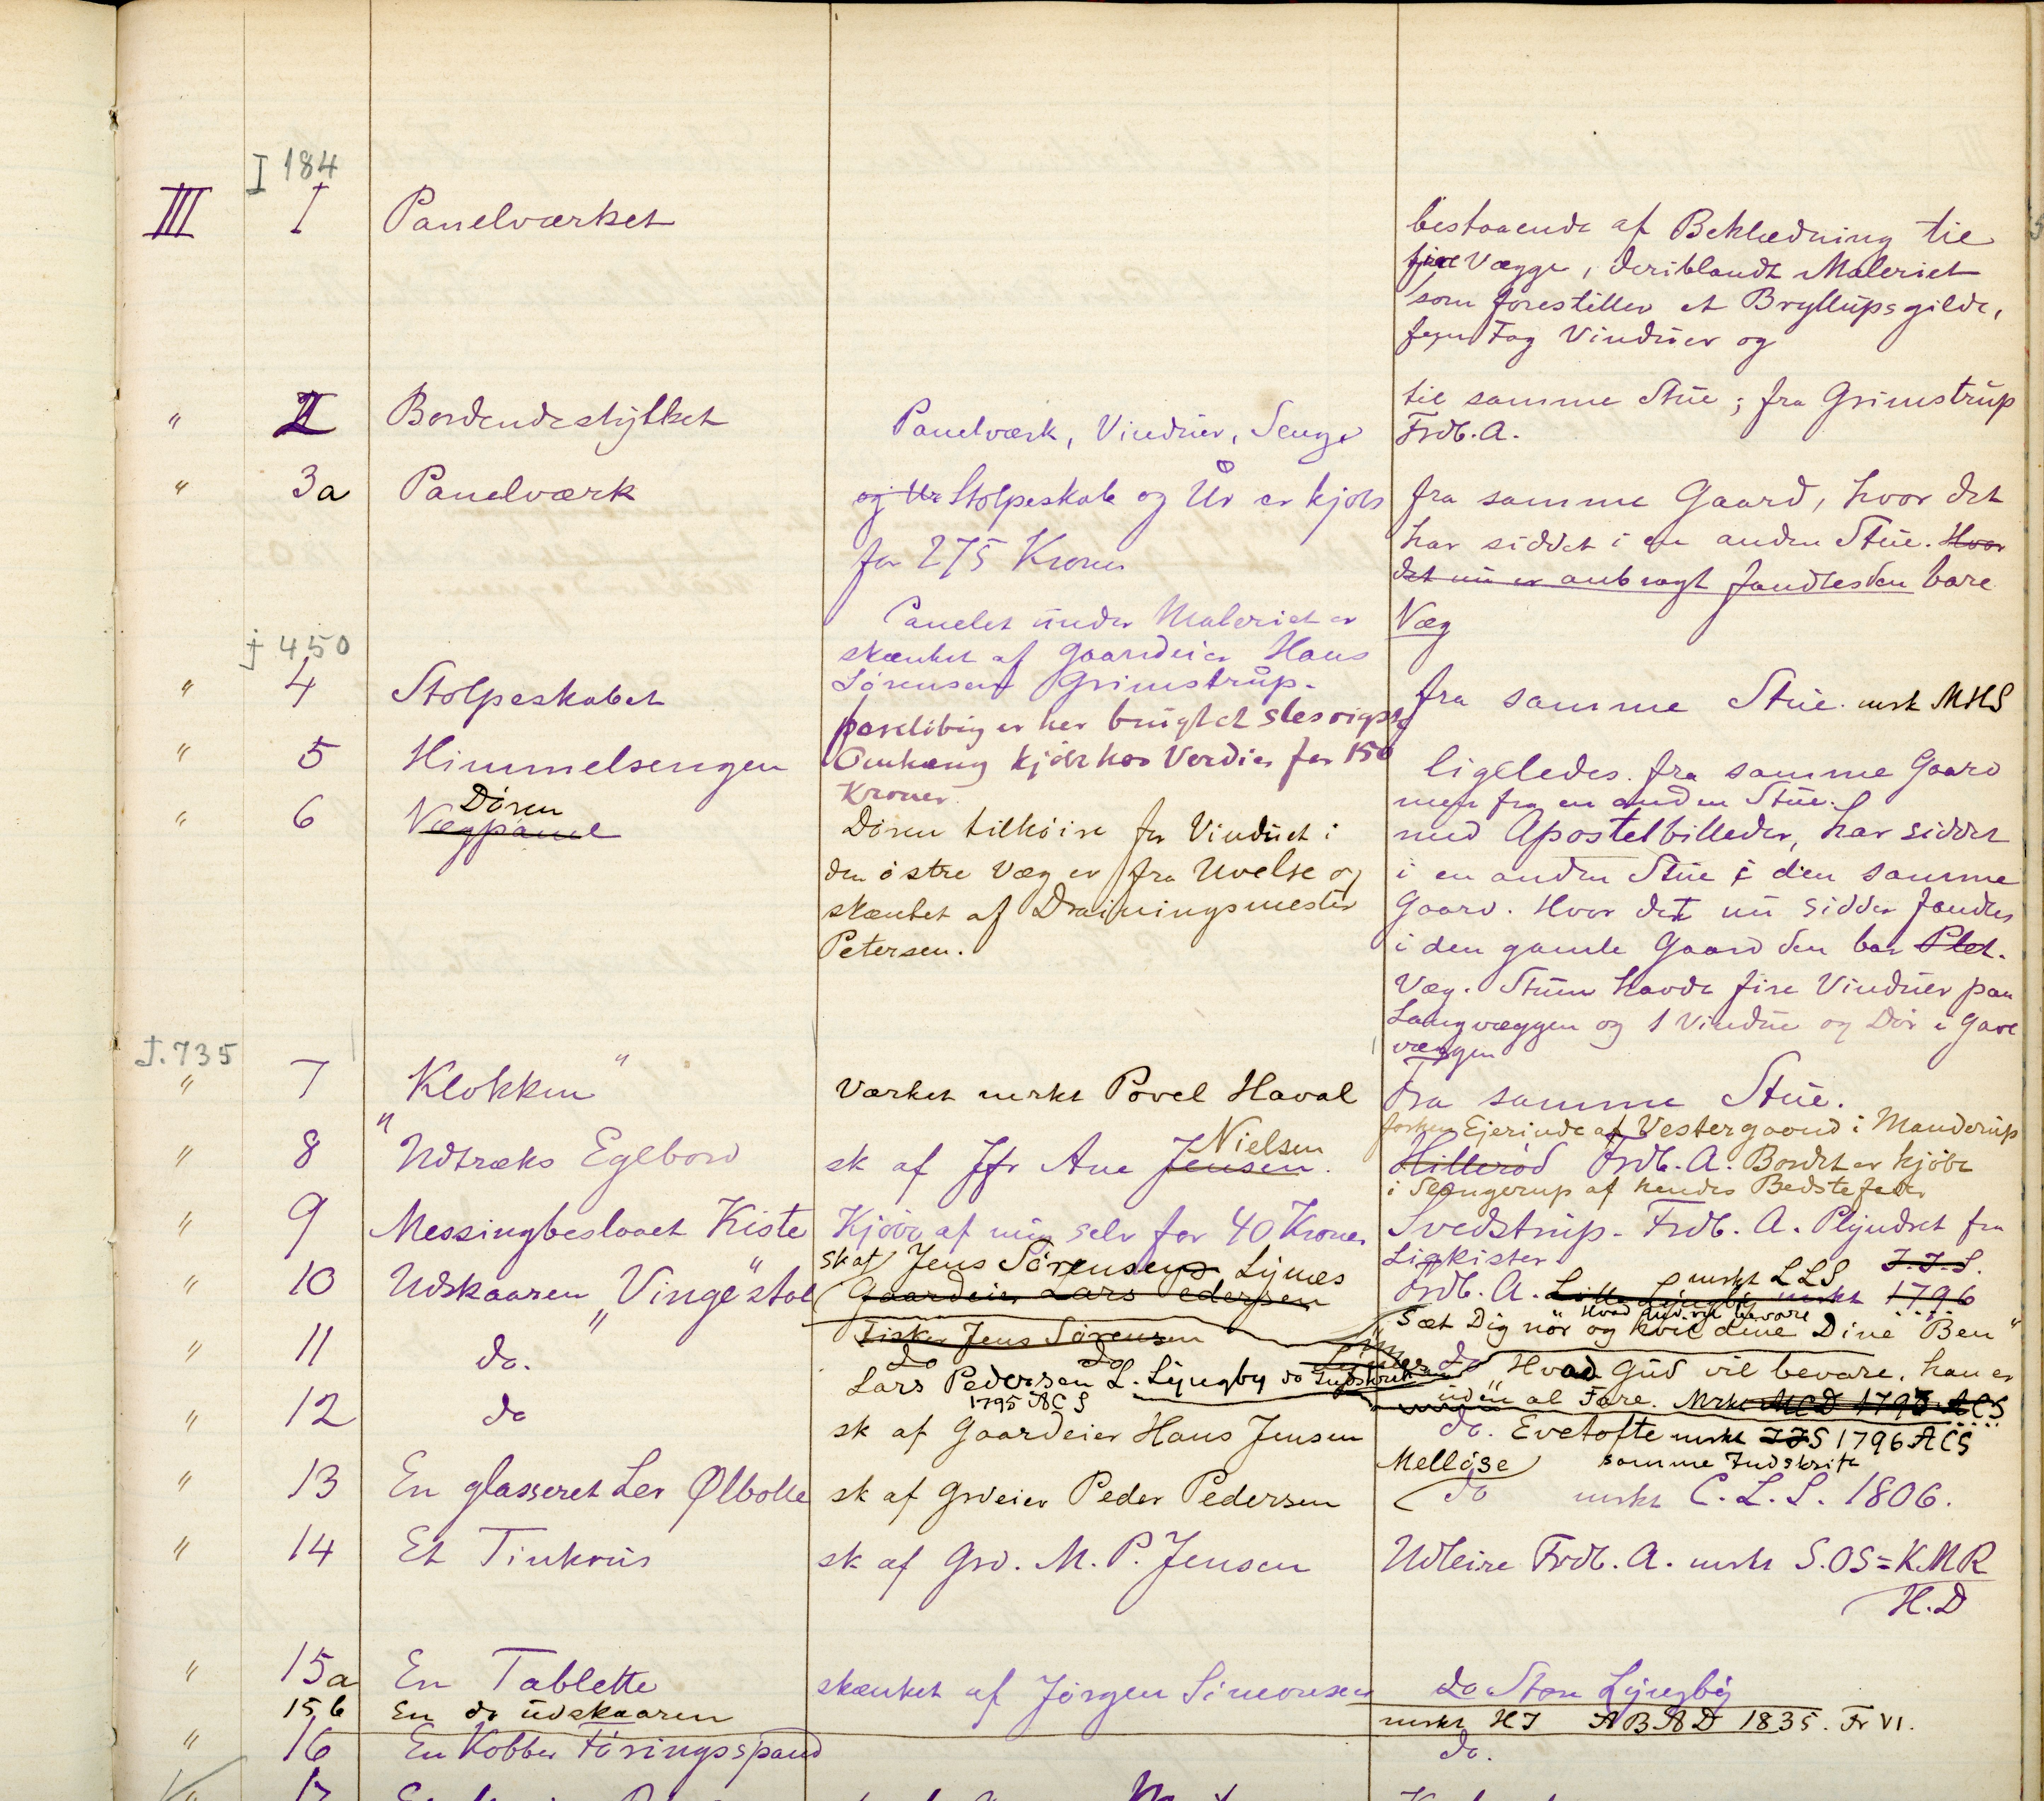 I 184
III I Panelværket
bestaaende af Beklædning til
fire Vægge, deriblandt Maleriet
som forestiller et Bryllupsgilde,
fem Fag Vinduer og
" II Bordendestykket
til samme Stue; fra Grimstrup
Frdb. A.
" 3a Panelværk
Panelværk, Vinduer, Senge
og Ur Stolpeskab og Ur er kjøbt
for 275 Kroner
fra samme Gaard, hvor det
har siddet i en anden Stue. Hvor
det nu er anbragt fandtes den bare
Væg
Panelet under Maleriet er
skænket af Gaardeier Hans
Sørensen Grimstrup.
J 450
" 4 Stolpeskabet
fra samme Stue. mrk MHS
" 5 Himmelsengen
forelöbig er her brugt et slesvigsk
Omhæng kjöbt hos Verdier for 150
Kroner
ligeledes fra samme Gaard
men fra en anden Stue.
" 6 Vægpanel
Dören
Dören tilhöire for Vinduet i
den östre Væg er fra Uvelse og
skænket af Drainingsmester
Petersen.
med Apostelbilleder, har siddet
i en anden Stue i den samme
Gaard. Hvor det nu sidder fandtes
i den gamle Gaard den bar Plet.
Væg. Stuen havde fire Vinduer paa
Langvæggen og 1 Vindue og Dör i Gavl
væggen
J. 735
" 7 "Klokken"
Værket mrkt Povel Haval
Fra samme Stue.
" 8 Udtræks Egebord
sk af Jfr Ane Jensen.
Nielsen
forhen Ejerinde af Vestergaard i Manderup
Hilleröd Frdb. A. Bordet er kjöbt
i Slangerup af hendes Bedstefader
" 9 Messingbeslaaet Kiste
Kjöbt af mig selv for 40 Kroner
Svedstrup. Frdb. A. Plyndret fra
Ligkister
" 10 Udskaaren "Vinge"stol
sk af Jens Sörensen Lynæs
Gaardeier Lars Pedersen
mrkt LLS J.J.S.
Frdb. A. Lille Lyngby mrkt 1796
Hvad Gud vil bevare
"Sæt Dig nör og hvil dine Dine Ben"
" 11 do.
Fisker Jens Sörensen
do do Lynæs
Lars Pedersen L. Lyngby do Indskrift
1795 ACS
do "Hvad Gud vil bevare, han er
uden al Fare. Mrkt MCD 1795 ACS
" 12 do
sk af Gaardeier Hans Jensen
do. Evetofte mrkt JJS 1796 ACS
samme Indskrift
" 13 En glasseret Ler Ølbolle
sk af Grdeier Peder Pedersen
Mellöse
do mrkt C. L. S. 1806.
" 14 Et Tinkrus
sk af Grd. M. P. Jensen
Udleire Frdb. A. mrkt S.OS=K.M.R
H.D
" 15a En Tablette
skænket af Jörgen Simonsen
do Store Lyngby
15b En do udskaaren
mrkt HJ ABAD 1835. Fr VI.
" 16 En Kobber Föringsspand
do.
" 17